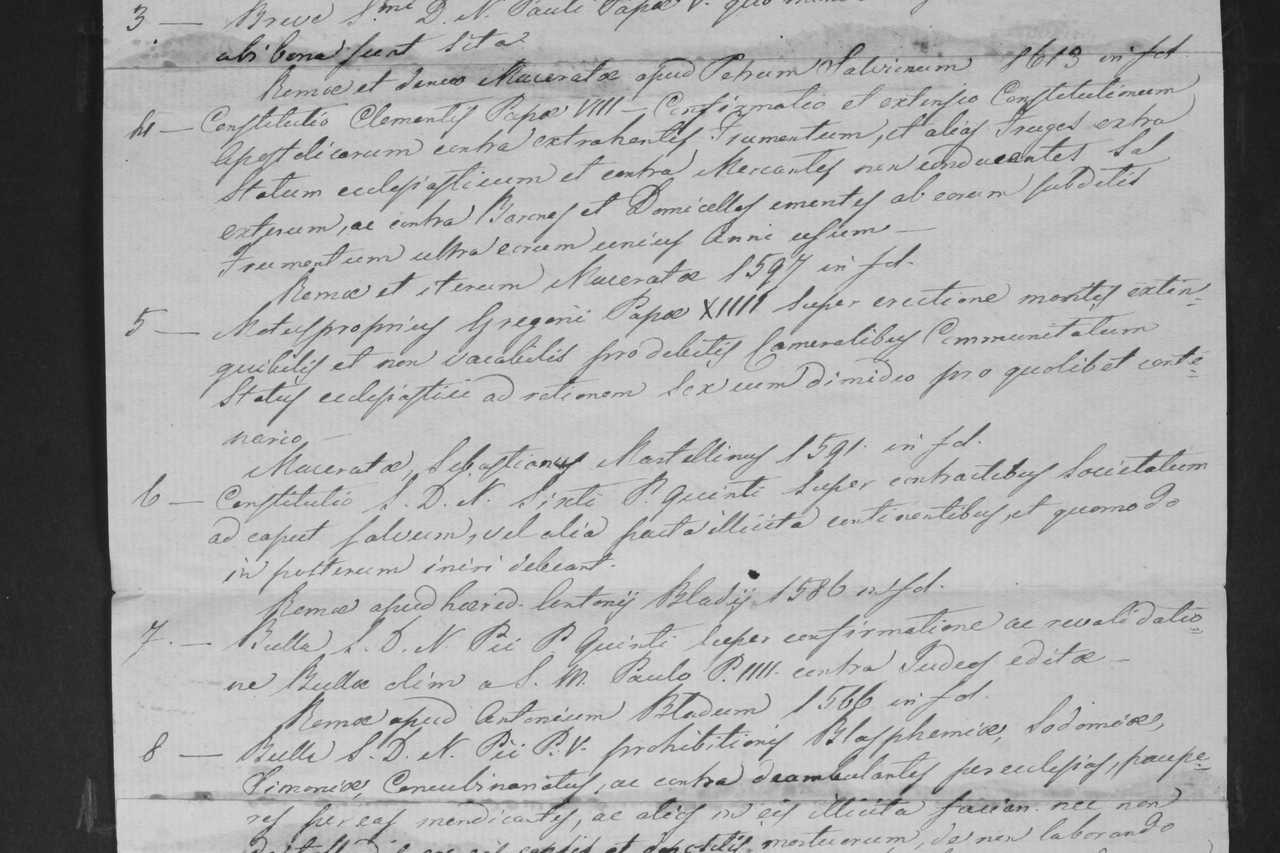 3 — Breve S.mi D. N. Pauli Papæ V. quo
ubi bona sunt sita
Romæ et denuo Maceratæ apud Petrum Salvionum 1613 in fol.
4 — Constitutio Clementis Papæ VIII — Confirmatio et extensio Constitutionum
Apostolicarum contra extrahentes Frumentum, et alias Fruges extra
Statum ecclesiasticum et contra Mercantes non conducentes Sal
exterum, ac contra Barones et Domicellos ementes ab eorum subditis
Frumentum ultra eorum unius Anni usum —
Romæ et iterum Maceratæ 1597 in fol.
5 — Motusproprius Gregorii Papæ XIIII super erectione montis extin=
guibilis et non vacabilis pro debitis Cameralibus Communitatum
Status ecclesiastici ad rationem sex cum dimidio pro quolibet cente=
nario —
Maceratæ, Sebastianus Martellinus 1591. in fol.
6 — Constitutio S. D. N. Sixti P. Quinti super contractibus Societatum
ad caput salvum, vel alia pacta illicita continentibus, et quomodo
in posterum iniri debeant.
Romæ apud hæred. Antonij Bladij 1586 in fol.
7. — Bulla S. D. N. Pii P. Quinti super confirmatione ac revalidatio=
ne Bullæ olim a S. M. Paulo P. IIII. contra Judeos editæ —
Romæ apud Antonium Bladum 1566 in fol.
8 — Bulla S. D. N. Pii P. V. prohibitionis Blasphemiæ, Sodomiæ,
Simoniæ, Concubinariatus, ac contra deambulantes per ecclesias, paupe=
res per eas mendicantes, ac alios in eis illicita facien. nec non
et depositis mortuorum, de non laborando